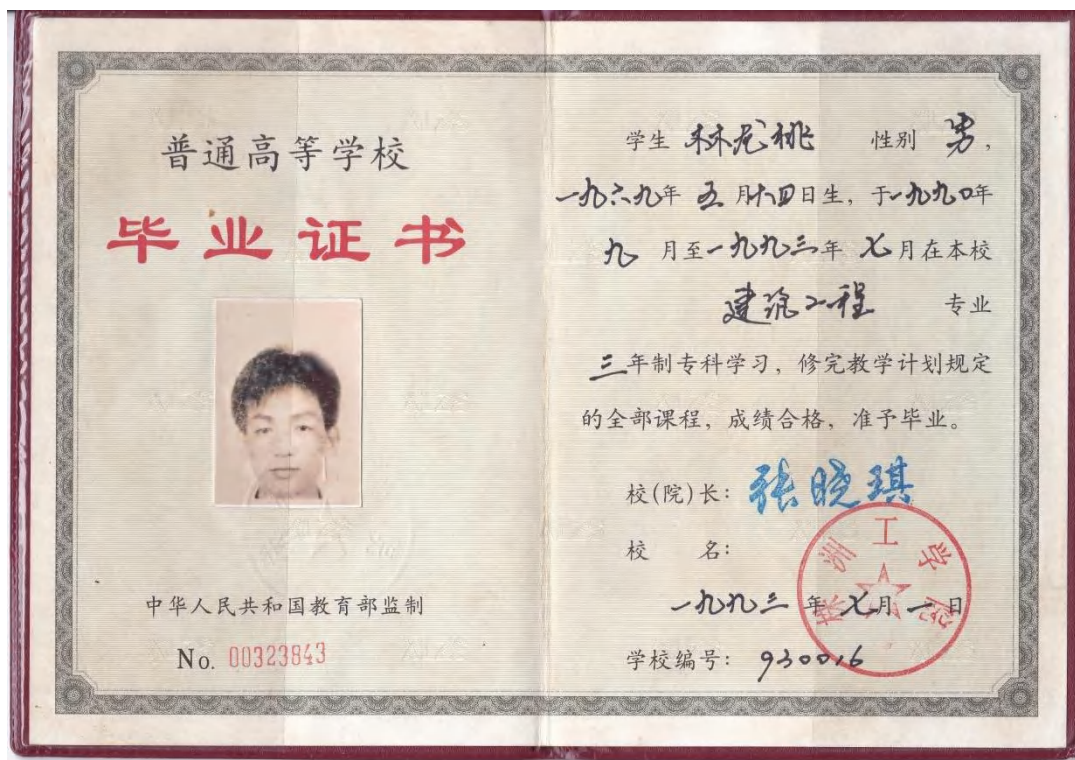 普通高等学校
毕业证书
中华人民共和国教育部监制
No. 00323843
学生 林龙桃 性别 男，
一九六九年 五 月十四日生，于一九九〇年
九 月至一九九三年 七月在本校
建筑工程 专业
三年制专科学习，修完教学计划规定
的全部课程，成绩合格，准予毕业。
校(院)长：张晓琪
校 名：
株洲工学院
一九九三 年 七月 一日
学校编号：930016